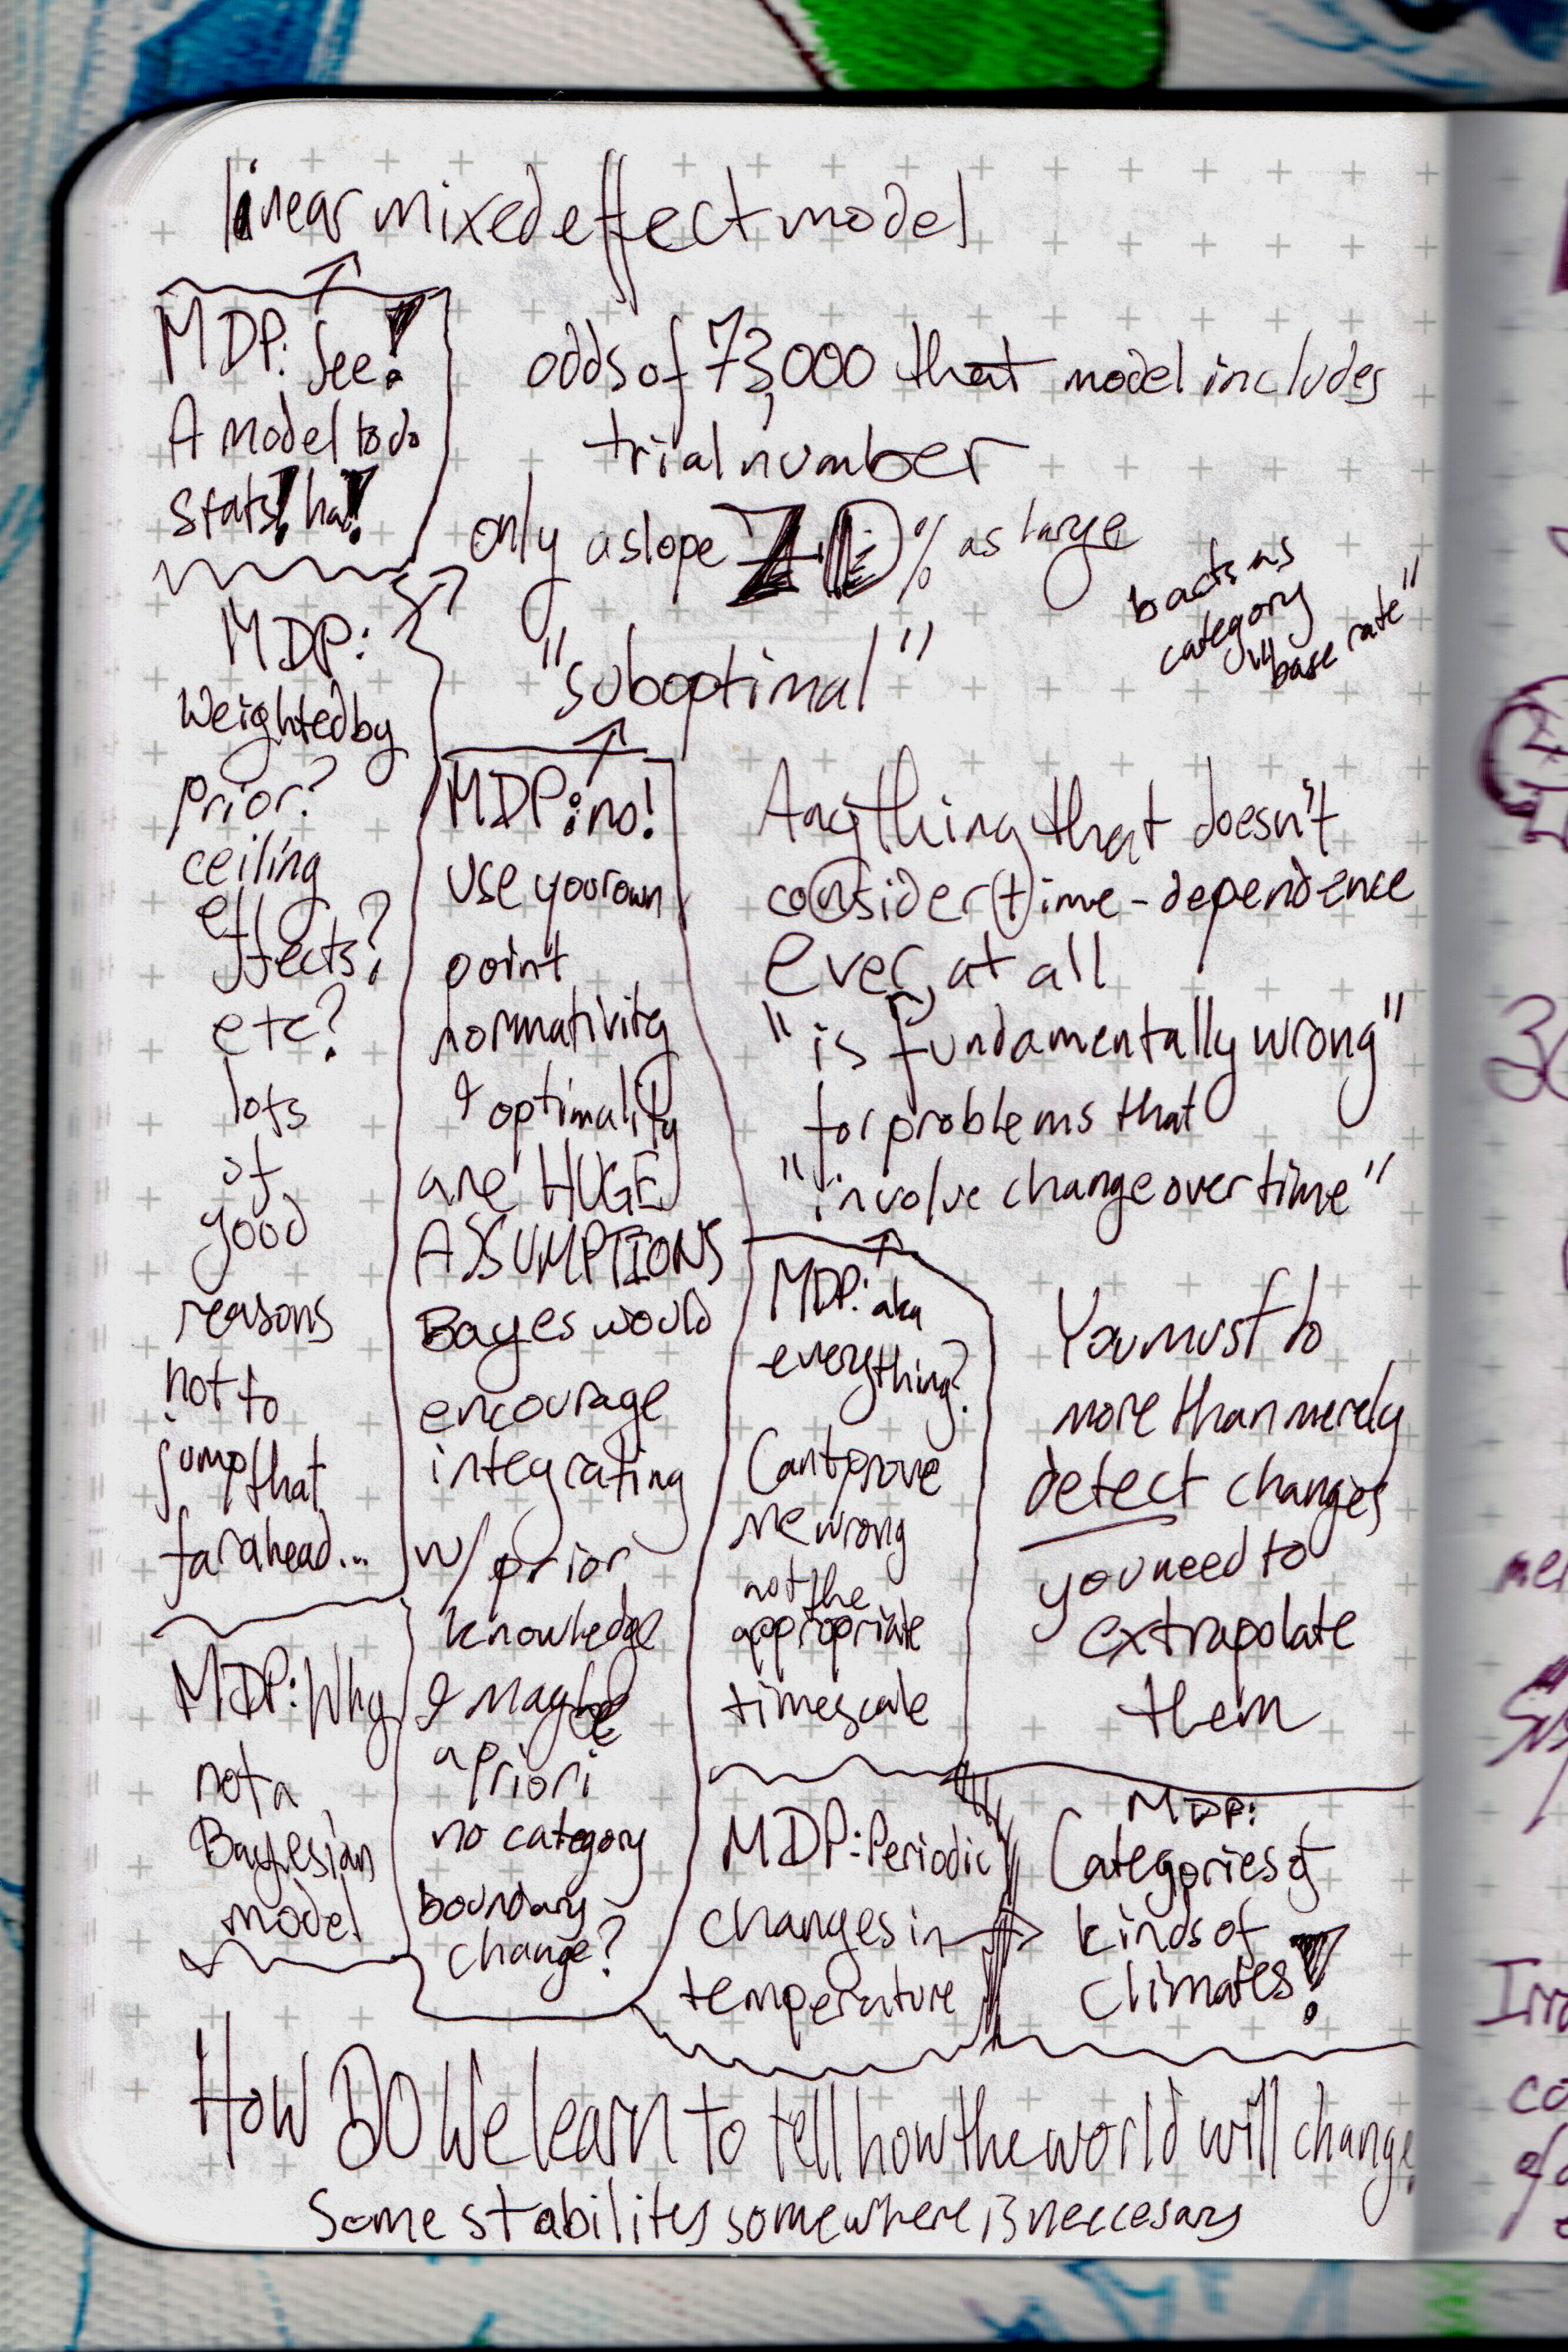 linear mixed effect model
MDP: See!
A model to do
stats! ha!
odds of 73,000 that model includes
trial number
only a slope % as large
b acts as
category
"base rate"
"suboptimal"
MDP:
Weighted by
prior?
ceiling
effects?
etc?
lots
of
good
reasons
not to
jump that
far ahead...
MDP: Why
not a
Bayesian
model
MDP: no!
use your own
point
normativity
& optimality
are HUGE
ASSUMPTIONS
Bayes would
encourage
integrating
w/ prior
knowledge
& maybe
a priori
no category
boundary
change?
Anything that doesn't
consider (t)ime-dependence
ever, at all
"is fundamentally wrong"
for problems that
"involve change over time"
MDP: aka
everything?
Cant prove
me wrong
not the
appropriate
timescale
You must to
more than merely
detect changes
you need to
extrapolate
them
MDP: Periodic
changes in
temperature
MDP:
Categories of
kinds of
climates!
How DO We learn to tell how the world will change
Some stability somewhere is neccesary